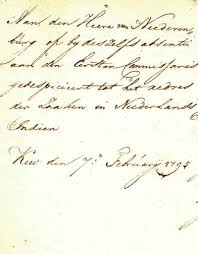 Aan den Heere van Nederen,
burg of by deszelfs absentie
aan den Eersten Commissaris
gedespicieert tot het redres
der Zaaken in Nederlands
Indien
Kew den 7: February 1795